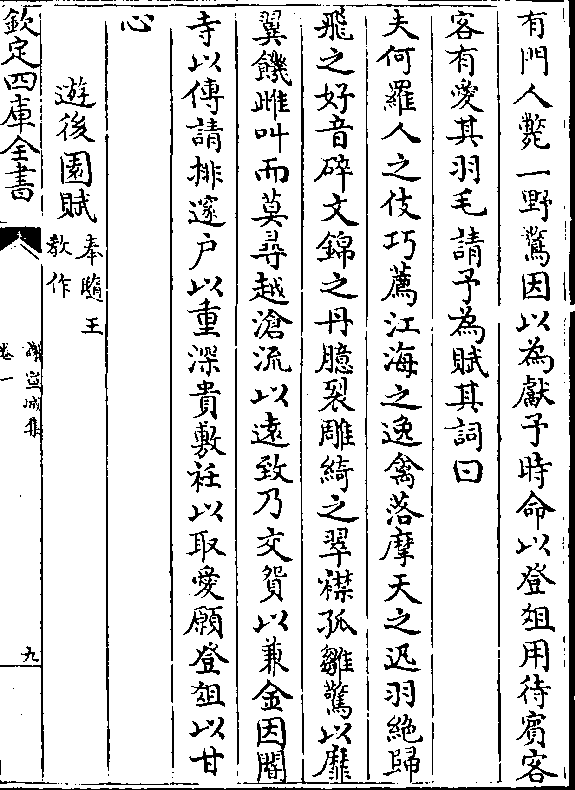 有門人斃一野鶩因以為獻予時命以登俎用待賓客
客有愛其羽毛請予為賦其詞曰
夫何羅人之伎巧薦江海之逸禽落摩天之迅羽絶歸
飛之好音碎文錦之丹臆裂雕綺之翠襟孤雛驚以靡
翼饑雌叫而莫尋越滄流以遠致乃交貿以兼金因閽
寺以傳請排邃户以重深貴敷衽以取愛願登俎以甘
心
遊後園賦
奉隨王
教作
欽定四庫全書
謝宣城集
卷一
九